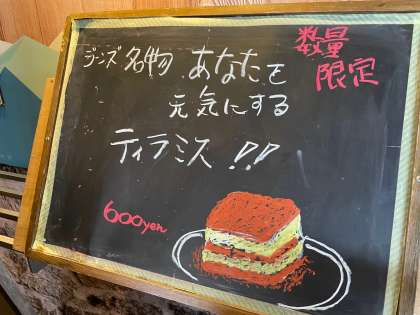 ジーンズ名物 あなたを
元気にする
ティラミス!!
数量
限定
600yen